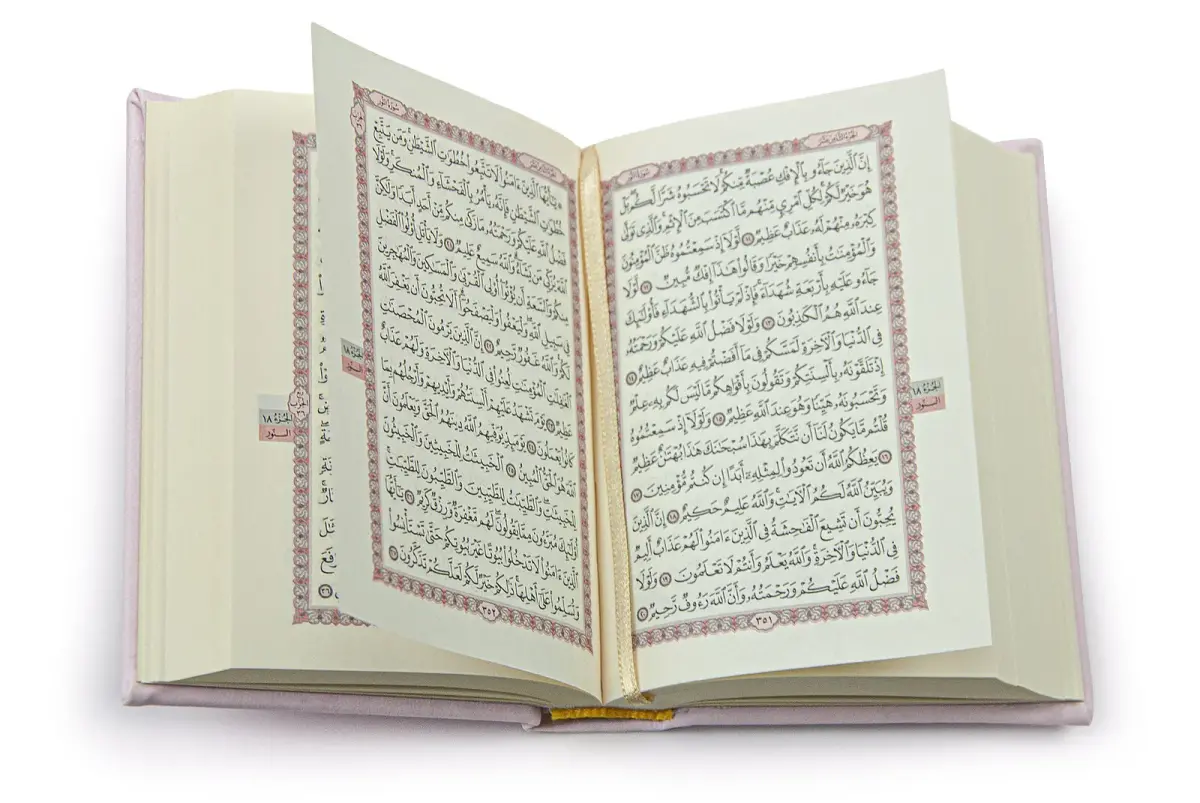 الجزء الثامن عشر
سورة النور
إِنَّ ٱلَّذِينَ جَآءُو بِٱلْإِفْكِ عُصْبَةٌ مِّنكُمْ لَا تَحْسَبُوهُ شَرًّا لَّكُم بَلْ
هُوَ خَيْرٌ لَّكُمْ لِكُلِّ ٱمْرِئٍ مِّنْهُم مَّا ٱكْتَسَبَ مِنَ ٱلْإِثْمِ وَٱلَّذِى تَوَلَّىٰ
كِبْرَهُۥ مِنْهُمْ لَهُۥ عَذَابٌ عَظِيمٌ ١١ لَّوْلَآ إِذْ سَمِعْتُمُوهُ ظَنَّ ٱلْمُؤْمِنُونَ
وَٱلْمُؤْمِنَٰتُ بِأَنفُسِهِمْ خَيْرًا وَقَالُوا۟ هَٰذَآ إِفْكٌ مُّبِينٌ ١٢ لَّوْلَا
جَآءُو عَلَيْهِ بِأَرْبَعَةِ شُهَدَآءَ فَإِذْ لَمْ يَأْتُوا۟ بِٱلشُّهَدَآءِ فَأُو۟لَٰٓئِكَ
عِندَ ٱللَّهِ هُمُ ٱلْكَٰذِبُونَ ١٣ وَلَوْلَا فَضْلُ ٱللَّهِ عَلَيْكُمْ وَرَحْمَتُهُۥ
فِى ٱلدُّنْيَا وَٱلْءَاخِرَةِ لَمَسَّكُمْ فِى مَآ أَفَضْتُمْ فِيهِ عَذَابٌ عَظِيمٌ ١٤
إِذْ تَلَقَّوْنَهُۥ بِأَلْسِنَتِكُمْ وَتَقُولُونَ بِأَفْوَاهِكُم مَّا لَيْسَ لَكُم بِهِۦ عِلْمٌ
وَتَحْسَبُونَهُۥ هَيِّنًا وَهُوَ عِندَ ٱللَّهِ عَظِيمٌ ١٥ وَلَوْلَآ إِذْ سَمِعْتُمُوهُ
قُلْتُم مَّا يَكُونُ لَنَآ أَن نَّتَكَلَّمَ بِهَٰذَا سُبْحَٰنَكَ هَٰذَا بُهْتَٰنٌ عَظِيمٌ
١٦ يَعِظُكُمُ ٱللَّهُ أَن تَعُودُوا۟ لِمِثْلِهِۦٓ أَبَدًا إِن كُنتُم مُّؤْمِنِينَ ١٧
وَيُبَيِّنُ ٱللَّهُ لَكُمُ ٱلْءَايَٰتِ وَٱللَّهُ عَلِيمٌ حَكِيمٌ ١٨ إِنَّ ٱلَّذِينَ
يُحِبُّونَ أَن تَشِيعَ ٱلْفَٰحِشَةُ فِى ٱلَّذِينَ ءَامَنُوا۟ لَهُمْ عَذَابٌ أَلِيمٌ
فِى ٱلدُّنْيَا وَٱلْءَاخِرَةِ وَٱللَّهُ يَعْلَمُ وَأَنتُمْ لَا تَعْلَمُونَ ١٩ وَلَوْلَا
فَضْلُ ٱللَّهِ عَلَيْكُمْ وَرَحْمَتُهُۥ وَأَنَّ ٱللَّهَ رَءُوفٌ رَّحِيمٌ ٢٠
٣٥١
الجزء ١٨
النور
سورة النور
الجزء الثامن عشر
الحزب
يَٰٓأَيُّهَا ٱلَّذِينَ ءَامَنُوا۟ لَا تَتَّبِعُوا۟ خُطُوَٰتِ ٱلشَّيْطَٰنِ وَمَن يَتَّبِعْ
خُطُوَٰتِ ٱلشَّيْطَٰنِ فَإِنَّهُۥ يَأْمُرُ بِٱلْفَحْشَآءِ وَٱلْمُنكَرِ وَلَوْلَا
فَضْلُ ٱللَّهِ عَلَيْكُمْ وَرَحْمَتُهُۥ مَا زَكَىٰ مِنكُم مِّنْ أَحَدٍ أَبَدًا وَلَٰكِنَّ
ٱللَّهَ يُزَكِّى مَن يَشَآءُ وَٱللَّهُ سَمِيعٌ عَلِيمٌ ٢١ وَلَا يَأْتَلِ أُو۟لُوا۟ ٱلْفَضْلِ
مِنكُمْ وَٱلسَّعَةِ أَن يُؤْتُوٓا۟ أُو۟لِى ٱلْقُرْبَىٰ وَٱلْمَسَٰكِينَ وَٱلْمُهَٰجِرِينَ
فِى سَبِيلِ ٱللَّهِ وَلْيَعْفُوا۟ وَلْيَصْفَحُوٓا۟ أَلَا تُحِبُّونَ أَن يَغْفِرَ ٱللَّهُ
لَكُمْ وَٱللَّهُ غَفُورٌ رَّحِيمٌ ٢٢ إِنَّ ٱلَّذِينَ يَرْمُونَ ٱلْمُحْصَنَٰتِ
ٱلْغَٰفِلَٰتِ ٱلْمُؤْمِنَٰتِ لُعِنُوا۟ فِى ٱلدُّنْيَا وَٱلْءَاخِرَةِ وَلَهُمْ عَذَابٌ
عَظِيمٌ ٢٣ يَوْمَ تَشْهَدُ عَلَيْهِمْ أَلْسِنَتُهُمْ وَأَيْدِيهِمْ وَأَرْجُلُهُم بِمَا
كَانُوا۟ يَعْمَلُونَ ٢٤ يَوْمَئِذٍ يُوَفِّيهِمُ ٱللَّهُ دِينَهُمُ ٱلْحَقَّ وَيَعْلَمُونَ أَنَّ
ٱللَّهَ هُوَ ٱلْحَقُّ ٱلْمُبِينُ ٢٥ ٱلْخَبِيثَٰتُ لِلْخَبِيثِينَ وَٱلْخَبِيثُونَ
لِلْخَبِيثَٰتِ وَٱلطَّيِّبَٰتُ لِلطَّيِّبِينَ وَٱلطَّيِّبُونَ لِلطَّيِّبَٰتِ
أُو۟لَٰٓئِكَ مُبَرَّءُونَ مِمَّا يَقُولُونَ لَهُم مَّغْفِرَةٌ وَرِزْقٌ كَرِيمٌ ٢٦ يَٰٓأَيُّهَا
ٱلَّذِينَ ءَامَنُوا۟ لَا تَدْخُلُوا۟ بُيُوتًا غَيْرَ بُيُوتِكُمْ حَتَّىٰ تَسْتَأْنِسُوا۟
وَتُسَلِّمُوا۟ عَلَىٰٓ أَهْلِهَا ذَٰلِكُمْ خَيْرٌ لَّكُمْ لَعَلَّكُمْ تَذَكَّرُونَ ٢٧
٣٥٢
١٨
النور
الجزء ١٨
النور